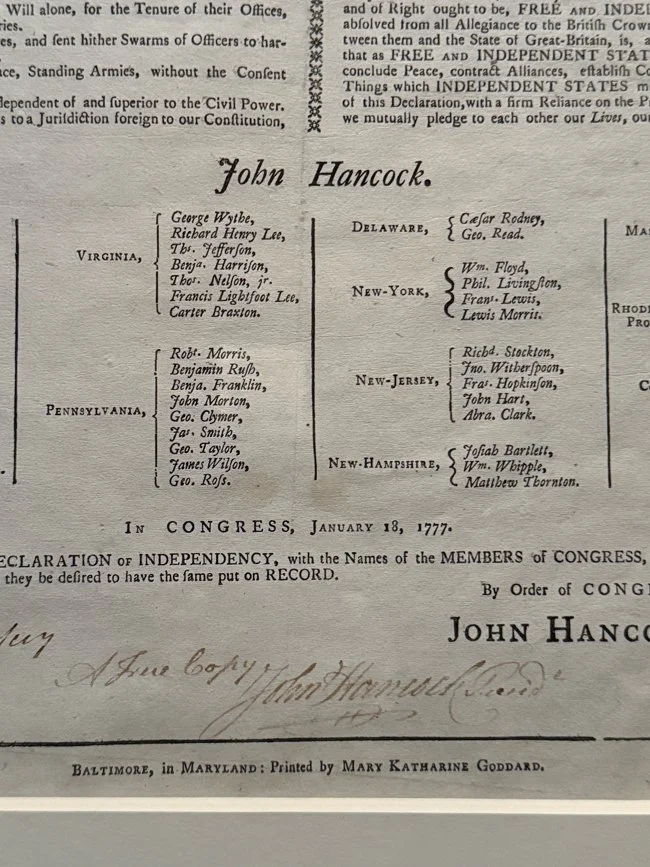 Will alone, for the Tenure of their Offices,
ries.
es, and ſent hither Swarms of Officers to har-
ace, Standing Armies, without the Conſent
dependent of and ſuperior to the Civil Power.
s to a Juriſdiction foreign to our Conſtitution,
and of Right ought to be, FREE AND INDE
abſolved from all Allegiance to the Britiſh Crow
tween them and the State of Great-Britain, is, a
that as FREE AND INDEPENDENT STAT
conclude Peace, contract Alliances, eſtabliſh Co
Things which INDEPENDENT STATES m
of this Declaration, with a firm Reliance on the P
we mutually pledge to each other our Lives, ou
John Hancock.
VIRGINIA,
George Wythe,
Richard Henry Lee,
Ths. Jefferſon,
Benja. Harriſon,
Thos. Nelſon, jr.
Francis Lightfoot Lee,
Carter Braxton.
PENNSYLVANIA,
Robt. Morris,
Benjamin Ruſh,
Benja. Franklin,
John Morton,
Geo. Clymer,
Jas. Smith,
Geo. Taylor,
James Wilſon,
Geo. Roſs.
DELAWARE,
Cæſar Rodney,
Geo. Read.
NEW-YORK,
Wm. Floyd,
Phil. Livingſton,
Frans. Lewis,
Lewis Morris.
NEW-JERSEY,
Richd. Stockton,
Jno. Witherſpoon,
Fras. Hopkinſon,
John Hart,
Abra. Clark.
NEW-HAMPSHIRE,
Joſiah Bartlett,
Wm. Whipple,
Matthew Thornton.
MA
RHODE
PRO
C
IN CONGRESS, JANUARY 18, 1777.
ECLARATION OF INDEPENDENCY, with the Names of the MEMBERS of CONGRESS,
they be deſired to have the ſame put on RECORD.
By Order of CONG
JOHN HANCO
A True Copy
John Hancock Presidt
BALTIMORE, in MARYLAND: Printed by MARY KATHARINE GODDARD.